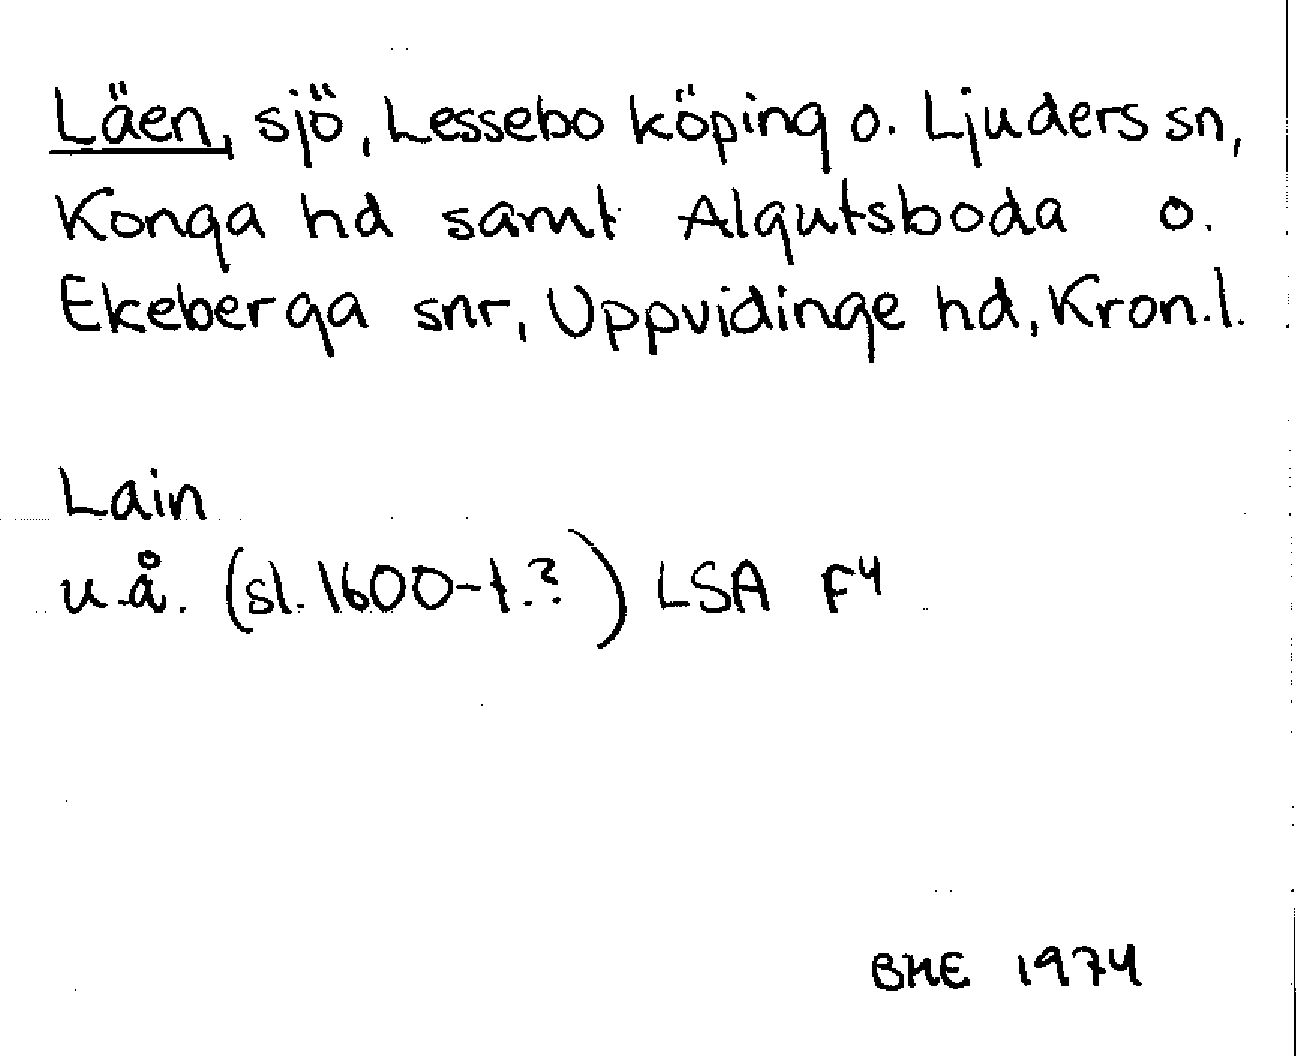 Läen, sjö, Lessebo köping o. Ljuders sn,
Konga hd samt Algutsboda o.
Ekeberga snr, Uppvidinge hd, Kron.l.
Lain
u.å. (sl. 1600-t.?) LSA F4
BHE 1974